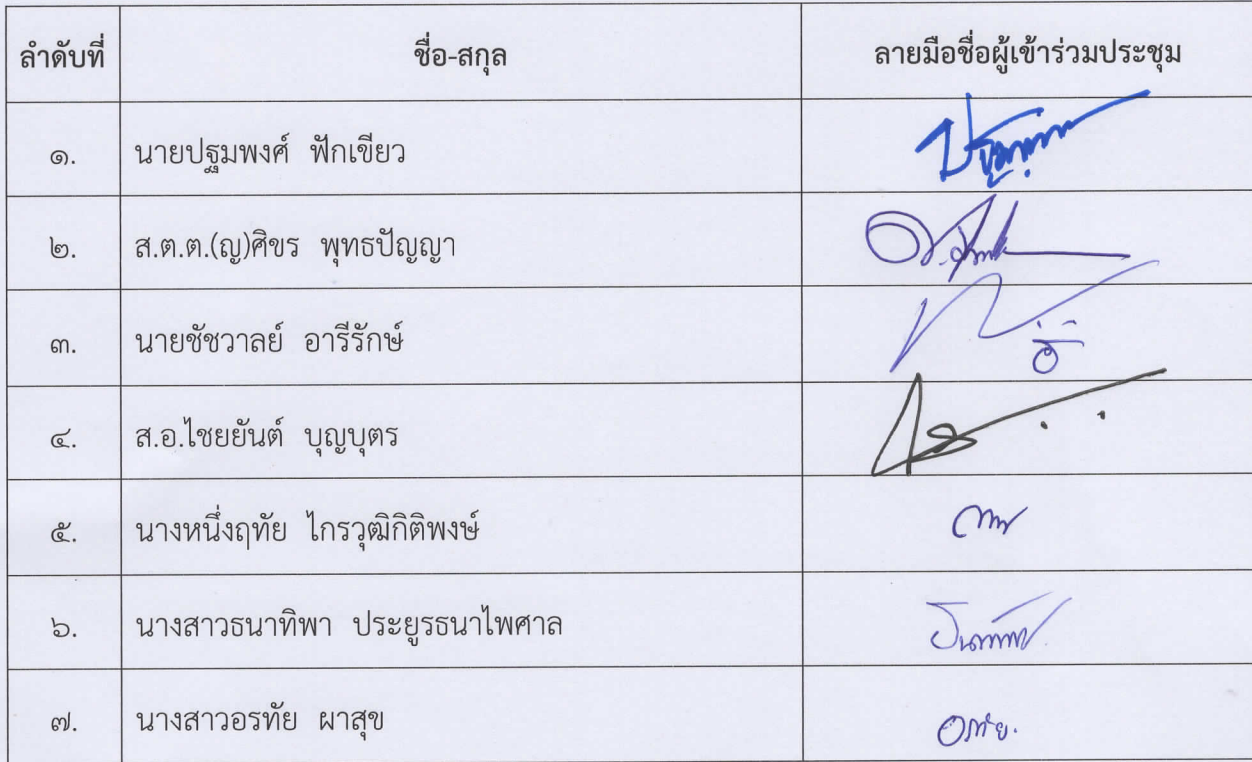 ลำดับที่ ชื่อ-สกุล ลายมือชื่อผู้เข้าร่วมประชุม
๑. นายปฐมพงศ์ ฟักเขียว
๒. ส.ต.ต.(ญ)ศิขร พุทธปัญญา
๓. นายชัชวาลย์ อารีรักษ์
๔. ส.อ.ไชยยันต์ บุญบุตร
๕. นางหนึ่งฤทัย ไกรวุฒิกิติพงษ์
๖. นางสาวธนาทิพา ประยูรธนาไพศาล
๗. นางสาวอรทัย ผาสุข